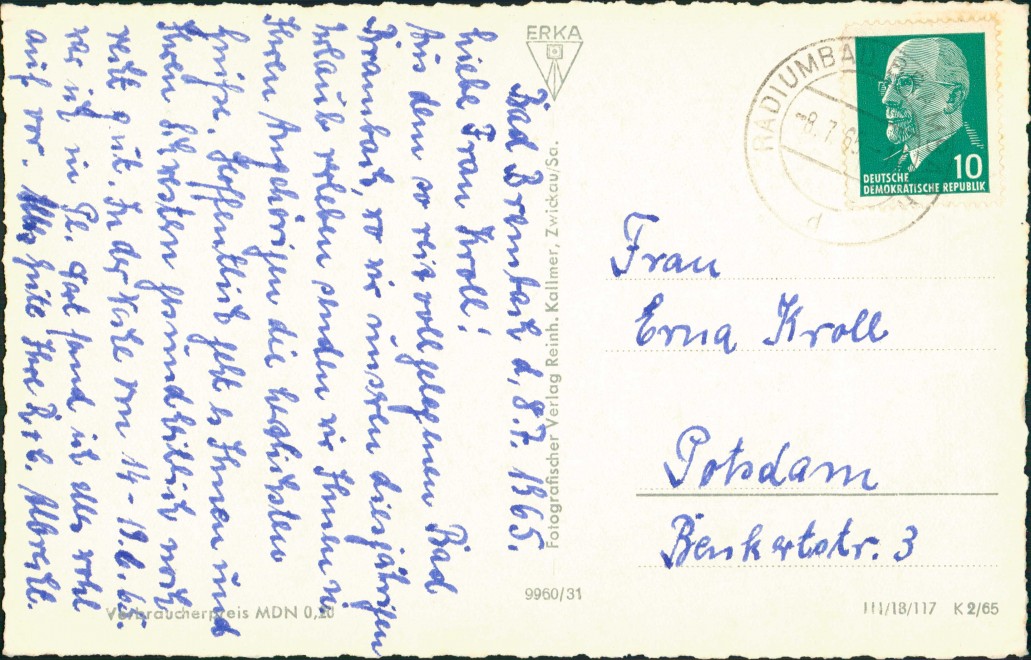 Bad Brambach d, 8.7. 1965.
Liebe Frau Kroll!
Aus dem so reizvoll gelegenen Bad
Brambach, wo wir unsren diesjährigen
Urlaub verleben senden wir Ihnen u.
Ihren Angehörigen die herzlichsten
Grüsse. Hoffentlich geht es Ihnen und
Ihren Schwestern gesundheitlich noch
recht gut. In der Woche vom 14 - 19.6.65.
war ich in und fand ich alles wohl
auf vor. Alles Gute Ihre u. Albrecht.
ERKA
Fotografischer Verlag Reinh. Kallmer, Zwickau/Sa.
Verbraucherpreis MDN 0,20
9960/31
III/18/117 K 2/65
RADIUMBAD
8.7.65
d
10
DEUTSCHE
DEMOKRATISCHE REPUBLIK
Frau
Erna Kroll
Potsdam
Benkertstr. 3